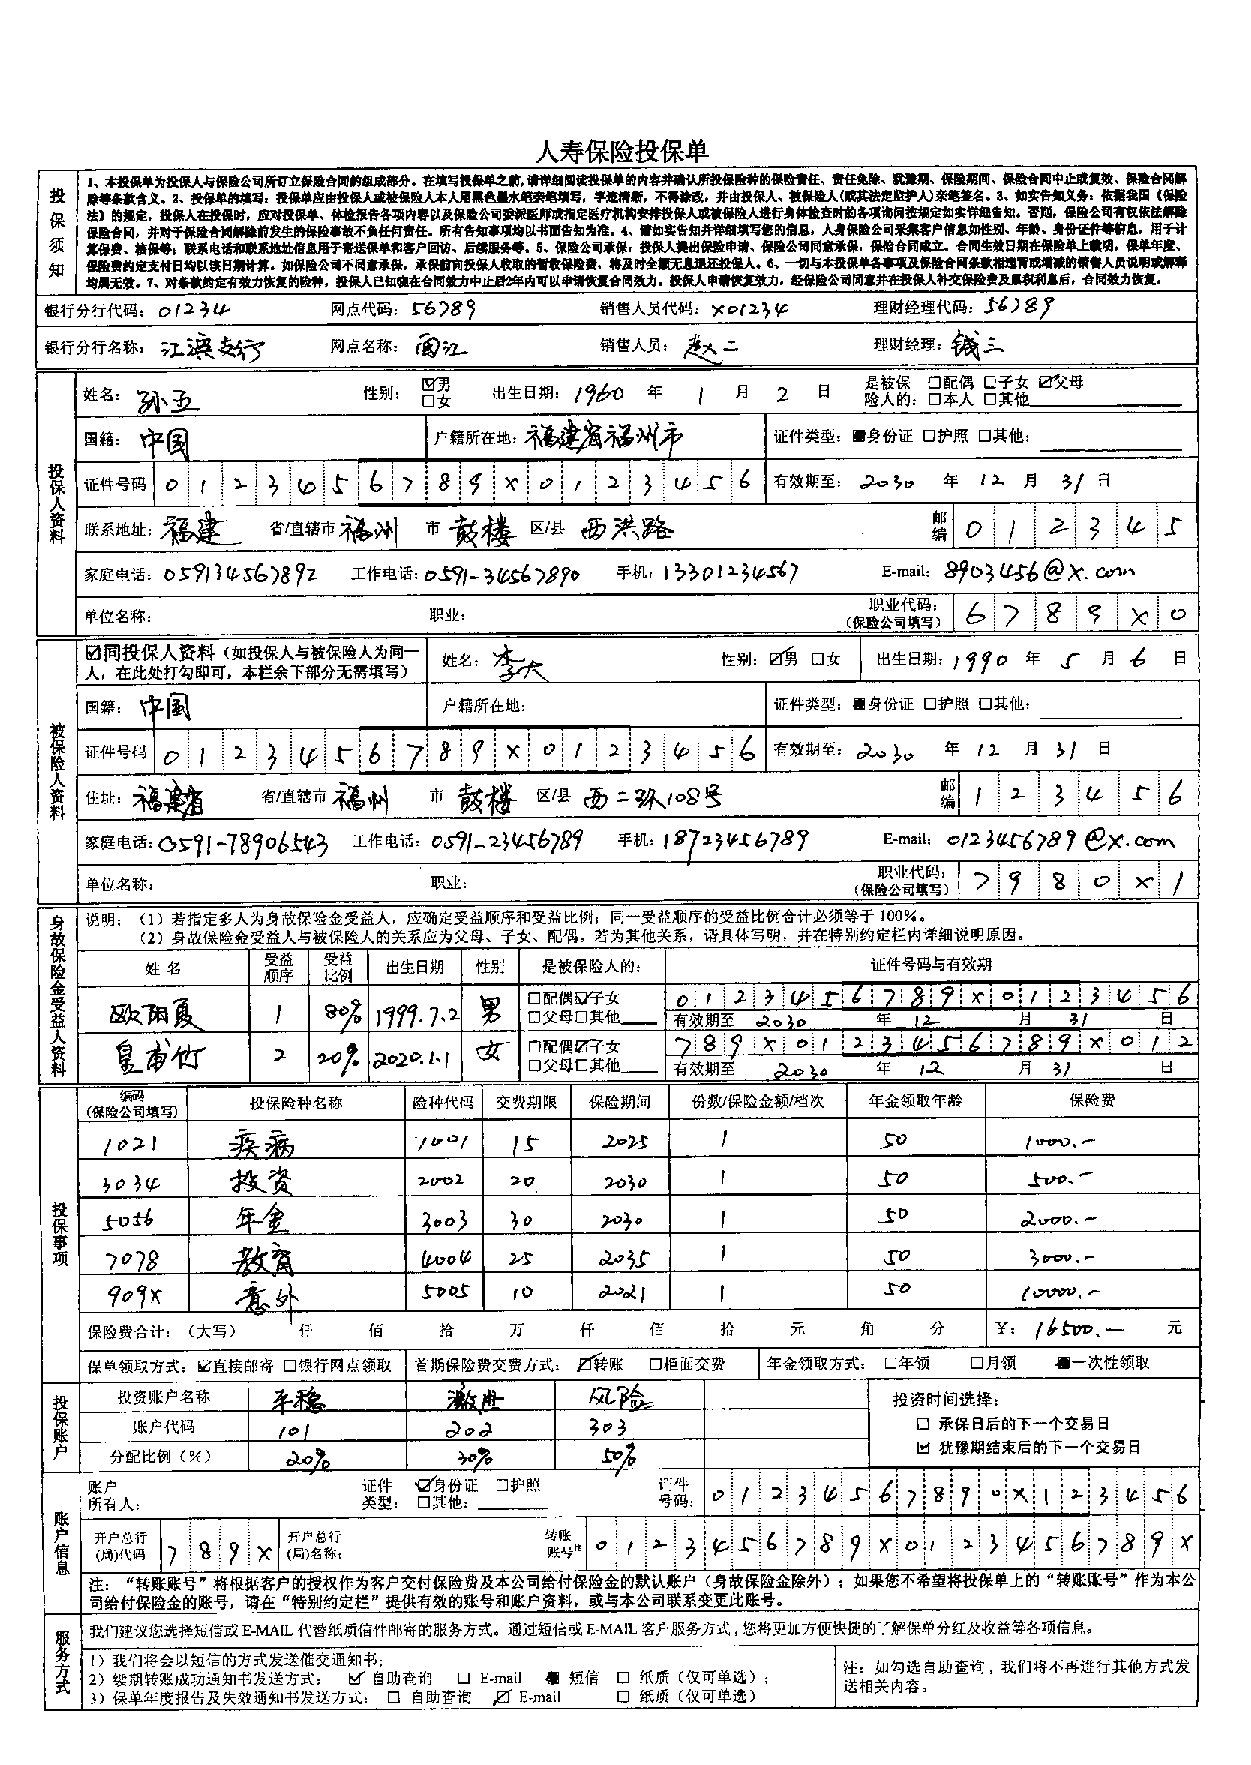 人寿保险投保单
投保须知
1、本投保单为投保人与保险公司所订立保险合同的组成部分。在填写投保单之前,请详细阅读投保单的内容并确认所投保险种的保险责任、责任免除、犹豫期、保险期间、保险合同中止或复效、保险合同解
除等条款含义。2、投保单的填写，投保单应由投保人或被保险人本人用黑色墨水笔亲笔填写，字迹清晰，不得涂改，并由投保人、被保险人(或其法定监护人)亲笔签名。3、如实告知义务：依据我国《保险
法》的规定，投保人在投保时，应对投保单、体检报告各项内容以及保险公司委派医师或指定医疗机构安排投保人或被保险人进行身体检查时的各项询问按规定如实详细告知。否则，保险公司有权依法解除
保险合同，并对于保险合同解除前发生的保险事故不负任何责任。所有告知事项均以书面告知为准。4、请如实告知并详细填写您的信息，人身保险公司采集客户信息如性别、年龄、身份证件等信息，用于计
算保费、核保等；联系电话和联系地址信息用于寄送保单和客户回访、后续服务等。5、保险公司承保：投保人提出保险申请、保险公司同意承保，保险合同成立。合同生效日期在保险单上载明，保单年度、
保险费约定支付日均以该日期计算。如保险公司不同意承保，承保前向投保人收取的暂收保险费，将及时全额无息退还投保人。6、一切与本投保单各事项及保险合同条款相违背或增减的销售人员说明或解释
均属无效。7、对条款约定有效力恢复的险种，投保人已知晓在合同效力中止后2年内可以申请恢复合同效力。投保人申请恢复效力，经保险公司同意并在投保人补交保险费及累积利息后，合同效力恢复。
银行分行代码：01234 网点代码：56789 销售人员代码：X01234 理财经理代码：56789
银行分行名称：江滨支行 网点名称：闽江 销售人员：赵二 理财经理：钱三
投保人资料
姓名：孙五 性别：☑男 □女 出生日期：1960 年 1 月 2 日 是被保险人的：□配偶 □子女 ☑父母 □本人 □其他
国籍：中国 户籍所在地：福建省福州市 证件类型：■身份证 □护照 □其他：
证件号码 0 1 2 3 4 5 6 7 8 9 X 0 1 2 3 4 5 6 有效期至：2030 年 12 月 31 日
联系地址：福建 省/直辖市 福州 市 鼓楼 区/县 西洪路 邮编 0 1 2 3 4 5
家庭电话：059134567892 工作电话：0591-34567890 手机：13301234567 E-mail：8903456@x.com
单位名称： 职业： 职业代码：(保险公司填写) 6 7 8 9 X 0
被保险人资料
☑同投保人资料（如投保人与被保险人为同一人，在此处打勾即可，本栏余下部分无需填写） 姓名：李六 性别：☑男 □女 出生日期：1990 年 5 月 6 日
国籍：中国 户籍所在地： 证件类型：■身份证 □护照 □其他：
证件号码 0 1 2 3 4 5 6 7 8 9 X 0 1 2 3 4 5 6 有效期至：2030 年 12 月 31 日
住址：福建省 省/直辖市 福州 市 鼓楼 区/县 西二环108号 邮编 1 2 3 4 5 6
家庭电话：0591-78906543 工作电话：0591-23456789 手机：18723456789 E-mail：0123456789@x.com
单位名称： 职业： 职业代码：(保险公司填写) 7 9 8 0 X 1
身故保险金受益人资料
说明：（1）若指定多人为身故保险金受益人，应确定受益顺序和受益比例；同一受益顺序的受益比例合计必须等于100%。
（2）身故保险金受益人与被保险人的关系应为父母、子女、配偶，若为其他关系，请具体写明，并在特别约定栏内详细说明原因。
姓名 受益顺序 受益比例 出生日期 性别 是被保险人的： 证件号码与有效期
欧阳夏 1 80% 1999.7.2 男 □配偶☑子女 □父母□其他 0 1 2 3 4 5 6 7 8 9 X 0 1 2 3 4 5 6
有效期至 2030 年 12 月 31 日
皇甫竹 2 20% 2020.1.1 女 □配偶☑子女 □父母□其他 7 8 9 X 0 1 2 3 4 5 6 7 8 9 X 0 1 2
有效期至 2030 年 12 月 31 日
投保事项
编码(保险公司填写) 投保险种名称 险种代码 交费期限 保险期间 份数/保险金额/档次 年金领取年龄 保险费
1021 疾病 1001 15 2025 1 50 1000.-
3034 投资 2002 20 2030 1 50 500.-
5056 年金 3003 30 2030 1 50 2000.-
7078 教育 4004 25 2035 1 50 3000.-
909X 意外 5005 10 2021 1 50 10000.-
保险费合计：（大写） 仟 佰 拾 万 仟 佰 拾 元 角 分 ¥：16500.- 元
保单领取方式：☑直接邮寄 □银行网点领取 首期保险费交费方式：☑转账 □柜面交费 年金领取方式：□年领 □月领 ■一次性领取
投保账户
投资账户名称 平稳 激进 风险 投资时间选择：
账户代码 101 202 303 □ 承保日后的下一个交易日
分配比例（%） 20% 30% 50% ☑ 犹豫期结束后的下一个交易日
账户信息
账户所有人： 证件类型：☑身份证 □护照 □其他： 证件号码：0 1 2 3 4 5 6 7 8 9 0 X 1 2 3 4 5 6
开户总行(局)代码 7 8 9 X 开户总行(局)名称： 转账账号： 0 1 2 3 4 5 6 7 8 9 X 0 1 2 3 4 5 6 7 8 9 X
注：“转账账号”将根据客户的授权作为客户交付保险费及本公司给付保险金的默认账户（身故保险金除外）；如果您不希望将投保单上的“转账账号”作为本公
司给付保险金的账号，请在“特别约定栏”提供有效的账号和账户资料，或与本公司联系变更此账号。
服务方式
我们建议您选择短信或E-MAIL代替纸质信件邮寄的服务方式。通过短信或E-MAIL客户服务方式，您将更加方便快捷的了解保单分红及收益等各项信息。
1）我们将会以短信的方式发送催交通知书；
2）续期转账成功通知书发送方式： ☑ 自助查询 □ E-mail ■ 短信 □ 纸质（仅可单选）；
3）保单年度报告及失效通知书发送方式： □ 自助查询 ☑ E-mail □ 纸质（仅可单选）
注：如勾选自助查询，我们将不再进行其他方式发
送相关内容。